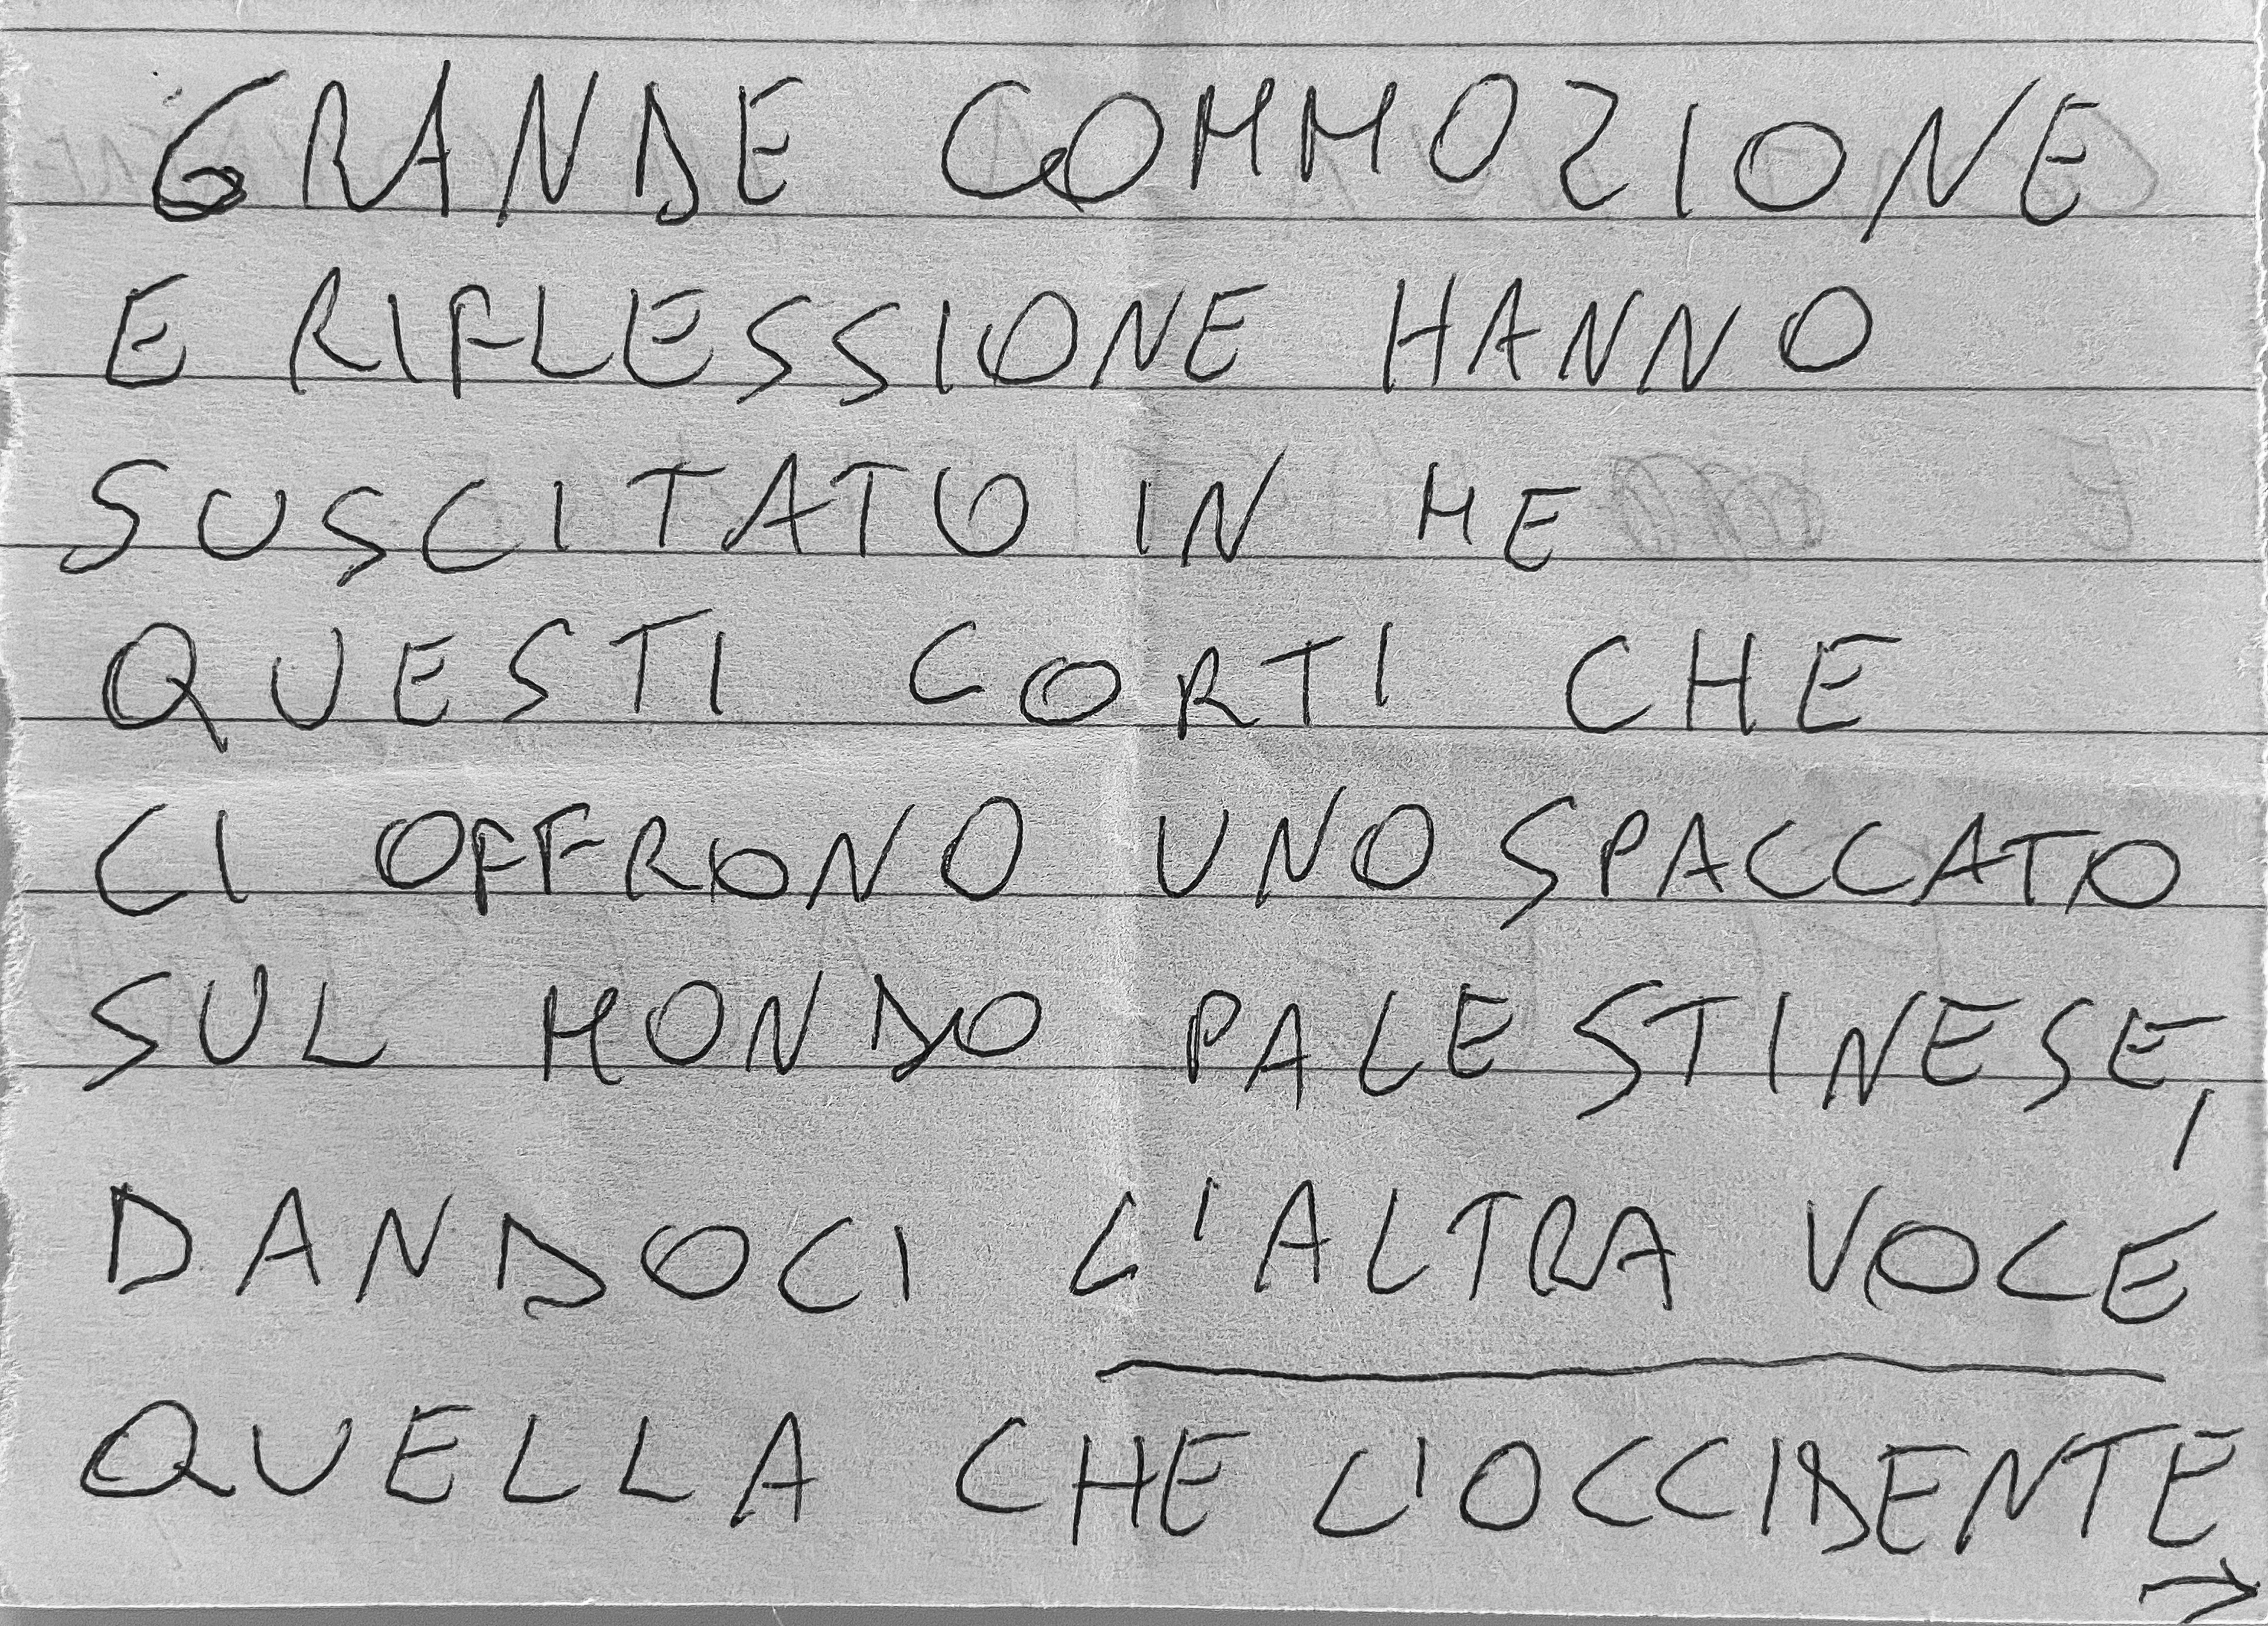 GRANDE COMMOZIONE
E RIFLESSIONE HANNO
SUSCITATO IN ME
QUESTI CORTI CHE
CI OFFRONO UNO SPACCATO
SUL MONDO PALESTINESE,
DANDOCI L'ALTRA VOCE
QUELLA CHE L'OCCIDENTE
→